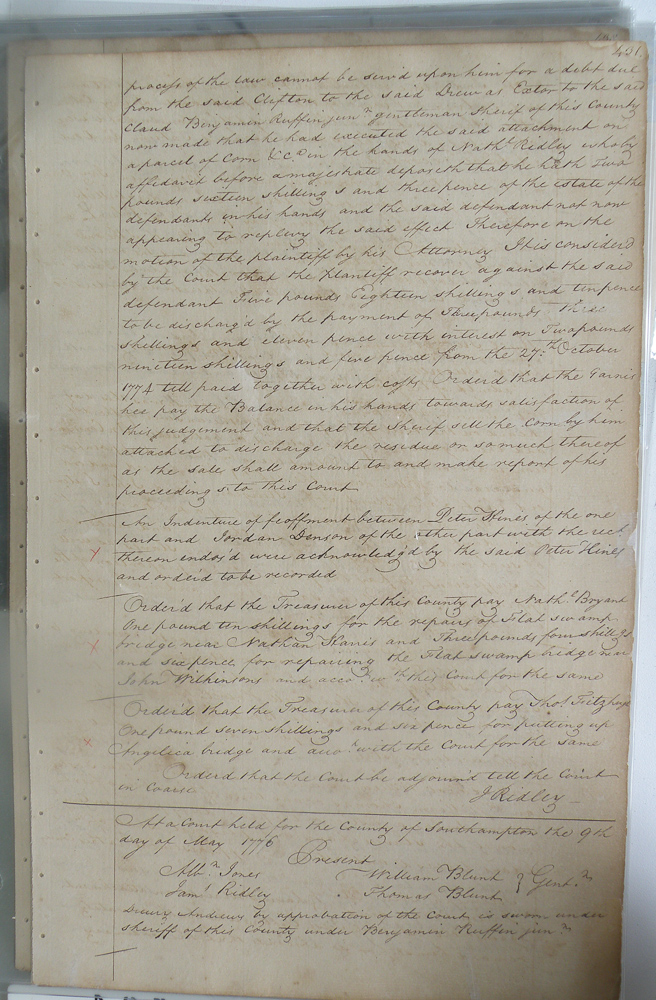 431
process of the law cannot be serv'd upon him for a debt due
from the said Clifton to the said Drew as Exōr to the said
Claud Benjamin Ruffin junr gentleman Sherif of this County
now made that he had executed the said attachment on
a parcel of Corn &Ca in the hands of Nathl Ridley who by
affidavit before a majestrate deposeth that he hath Two
pounds sixteen shillings and three pence of the estate of the
defendants in his hands and the said defendant not now
appearing to replevy the said effect Therefore on the
motion of the plaintiff by his Attorney It is consider'd
by the Court that the Plantiff recover against the said
defendant Five pounds Eighteen shillings and ten pence
to be discharg'd by the payment of Three pounds three
shillings and eleven pence with interest on Two pounds
nineteen shillings and five pence from the 27th October
1774 till paid together with costs Orderd that the Garnis
hee pay the Balance in his hands towards satisfaction of
this judgement and that the Sherif sell the Corn by him
attached to discharge the residue or so much thereof
as the sale shall amount to and make report of his
proceedings to this Court
An Indenture of feoffment between Peter Hines of the one
part and Jordan Denson of the other part with the rect
thereon endos'd were acknowledg'd by the said Peter Hines
and order'd to be recorded
Order'd that the Treasurer of this County pay Nathl Bryant
One pound ten shillings for the repairs of Flat swamp
bridge near Nathan Harris and Three pounds four shillgs
and six pence for repairing the Flat swamp bridge near
John Wilkinsons and acco.t wth the Court for the same
Order'd that the Treasurer of this County pay Thos Fitzhugh
One pound seven shillings and six pence for putting up
Angelica bridge and acco.t with the Court for the same
Orderd that the Court be adjourn'd tell the Court
in Coarse
J Ridley
At a Court held for the County of Southampton the 9th
day of May 1776
Present
Albn Jones William Blunt } Gentn
Jams Ridley Thomas Blunt
Drury Andrews by approbation of the Court is sworn under
sheriff of this County under Benjamin Ruffin junr